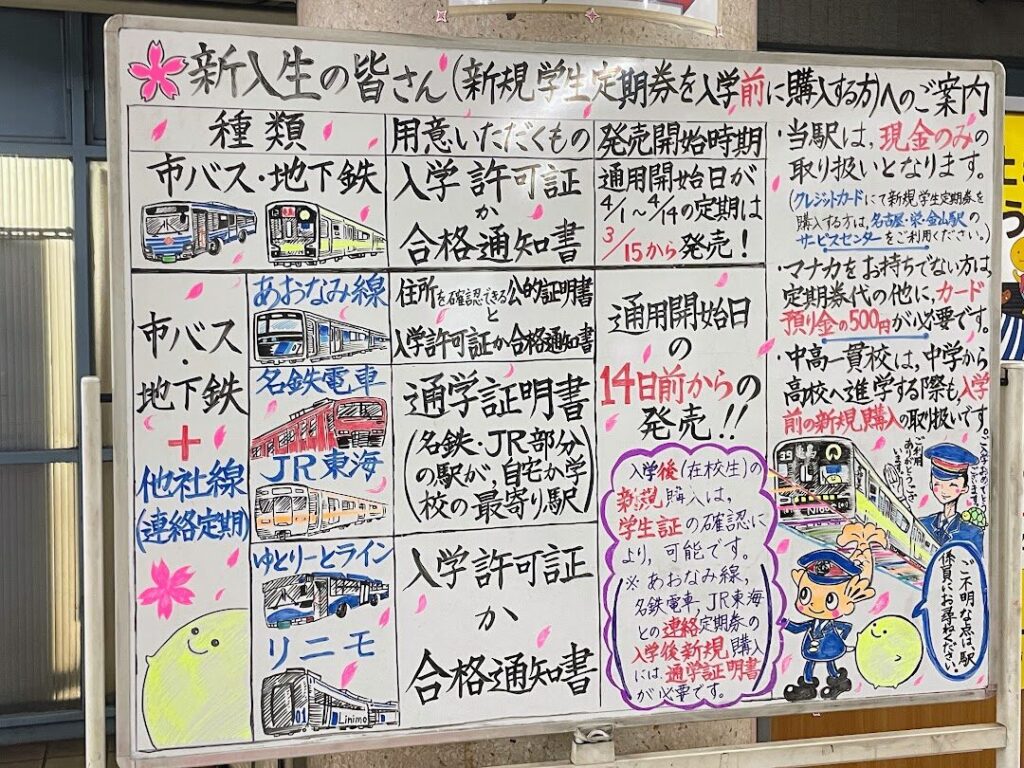 新入生の皆さん(新規学生定期券を入学前に購入する方)へのご案内
種類
用意いただくもの
発売開始時期
市バス・地下鉄
入学許可証
か
合格通知書
通用開始日が
4/1~4/14の定期は
3/15から発売!
市バス
・
地下鉄
+
他社線
(連絡定期)
あおなみ線
住所を確認できる公的証明書
と
入学許可証か合格通知書
名鉄電車
JR東海
通学証明書
(名鉄・JR部分
の駅が、自宅か学
校の最寄り駅)
ゆとりーとライン
リニモ
01
Linimo
入学許可証
か
合格通知書
通用開始日
の
14日前からの
発売!!
入学後(在校生)の
新規購入は、
学生証の確認に
より、可能です。
※あおなみ線,
名鉄電車,JR東海
との連絡定期券の
入学後新規購入
には、通学証明書
が必要です。
・当駅は、現金のみの
取り扱いとなります。
(クレジットカードにて新規学生定期券を
購入する方は、名古屋・栄・金山駅の
サービスセンターをご利用ください。)
・マナカをお持ちでない方は、
定期券代の他に、カード
預り金の500円が必要です。
・中高一貫校は、中学から
高校へ進学する際も、入学
前の新規購入の取り扱いです。
ご入学おめでとうございます
ご利用
ありがとうござ
います
ご不明な点は、駅
係員にお尋ねください。